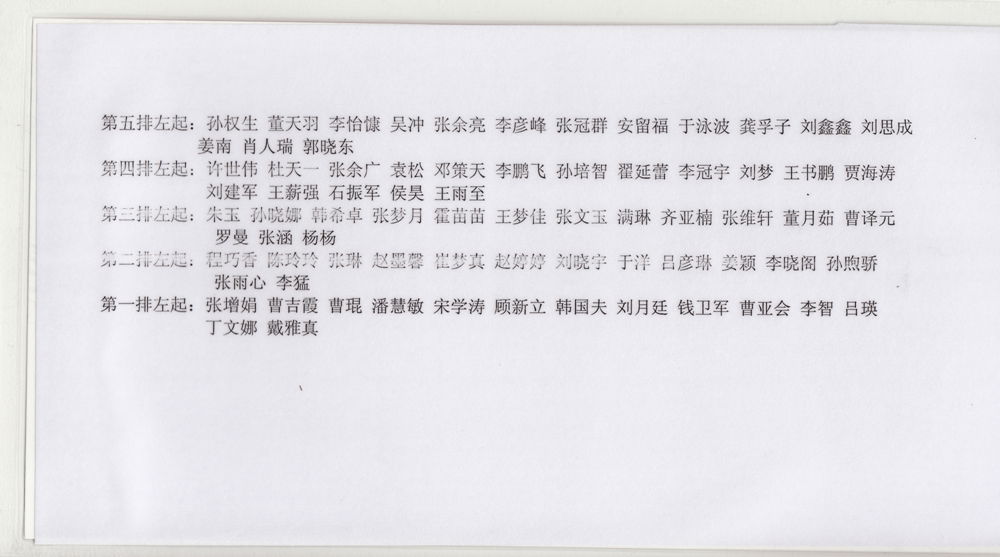 第五排左起：孙权生 董天羽 李怡慷 吴冲 张余亮 李彦峰 张冠群 安留福 于泳波 龚孚子 刘鑫鑫 刘思成
姜南 肖人瑞 郭晓东
第四排左起：许世伟 杜天一 张余广 袁松 邓策天 李鹏飞 孙培智 翟延蕾 李冠宇 刘梦 王书鹏 贾海涛
刘建军 王薪强 石振军 侯昊 王雨至
第三排左起：朱玉 孙晓娜 韩希卓 张梦月 霍苗苗 王梦佳 张文玉 满琳 齐亚楠 张维轩 董月茹 曹译元
罗曼 张涵 杨杨
第二排左起：程巧香 陈玲玲 张琳 赵墨馨 崔梦真 赵婷婷 刘晓宇 于洋 吕彦琳 姜颖 李晓阁 孙煦骄
张雨心 李猛
第一排左起：张增娟 曹吉霞 曹琨 潘慧敏 宋学涛 顾新立 韩国夫 刘月廷 钱卫军 曹亚会 李智 吕瑛
丁文娜 戴雅真